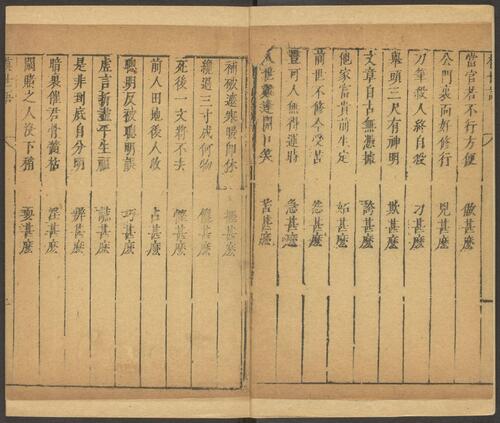 當官若不行方便 做甚麽
公門裏面好修行 兇甚麽
刀筆殺人終自殺 刁甚麽
舉頭三尺有神明 欺甚麽
文章自古無憑據 誇甚麽
他家富貴前生定 妬甚麽
前世不修今受苦 怨甚麽
豈可人無得運時 急甚麽
人世難逢開口笑 苦甚麽
補破遮寒暖卽休 甚麽
纔過三寸成何物 饞甚麽
死後一文將不去 慳甚麽
前人田地後人收 占甚麽
聰明反被聰明誤 巧甚麽
虛言折盡平生福 謊甚麽
是非到底自分明 辯甚麽
暗裏催君骨髓枯 淫甚麽
賭之人没下稍 耍甚麽